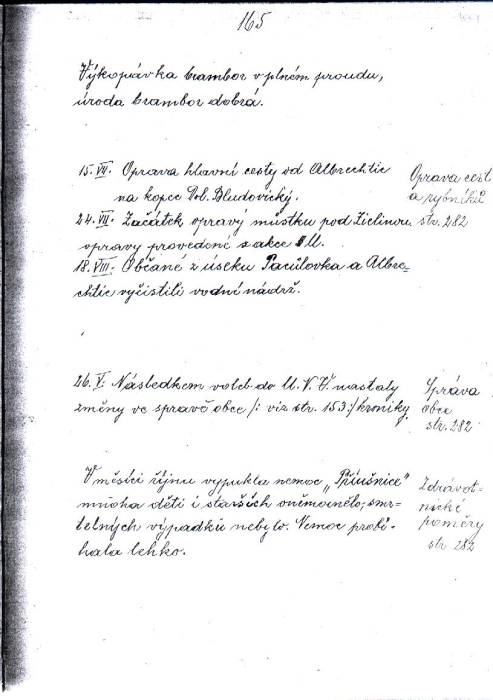 165
Výkopávka brambor v plném proudu,
úroda brambor dobrá.
15. VII. Oprava hlavní cesty od Albrechtic
na kopec Dol. Bludovický.
Oprava cest
a rybníků
24. VII. Začátek opravy můstku pod Zielinou
str. 282
opravy provedené s akce M.
18. VIII. Občané z úseku Pacůlovka a Albre-
chtic vyčistili vodní nádrž.
26. V. Následkem voleb do M. N. V. nastaly
změny ve správě obce /: viz str. 153:/ kroniky
Správa
obce
str. 282
V měsíci říjnu vypukla nemoc „Příušnice"
mnoha dětí i starších onemocnělo, smr-
telných výpadků nebylo. Nemoc probí-
hala lehko.
Zdravot-
nické
poměry
str 282